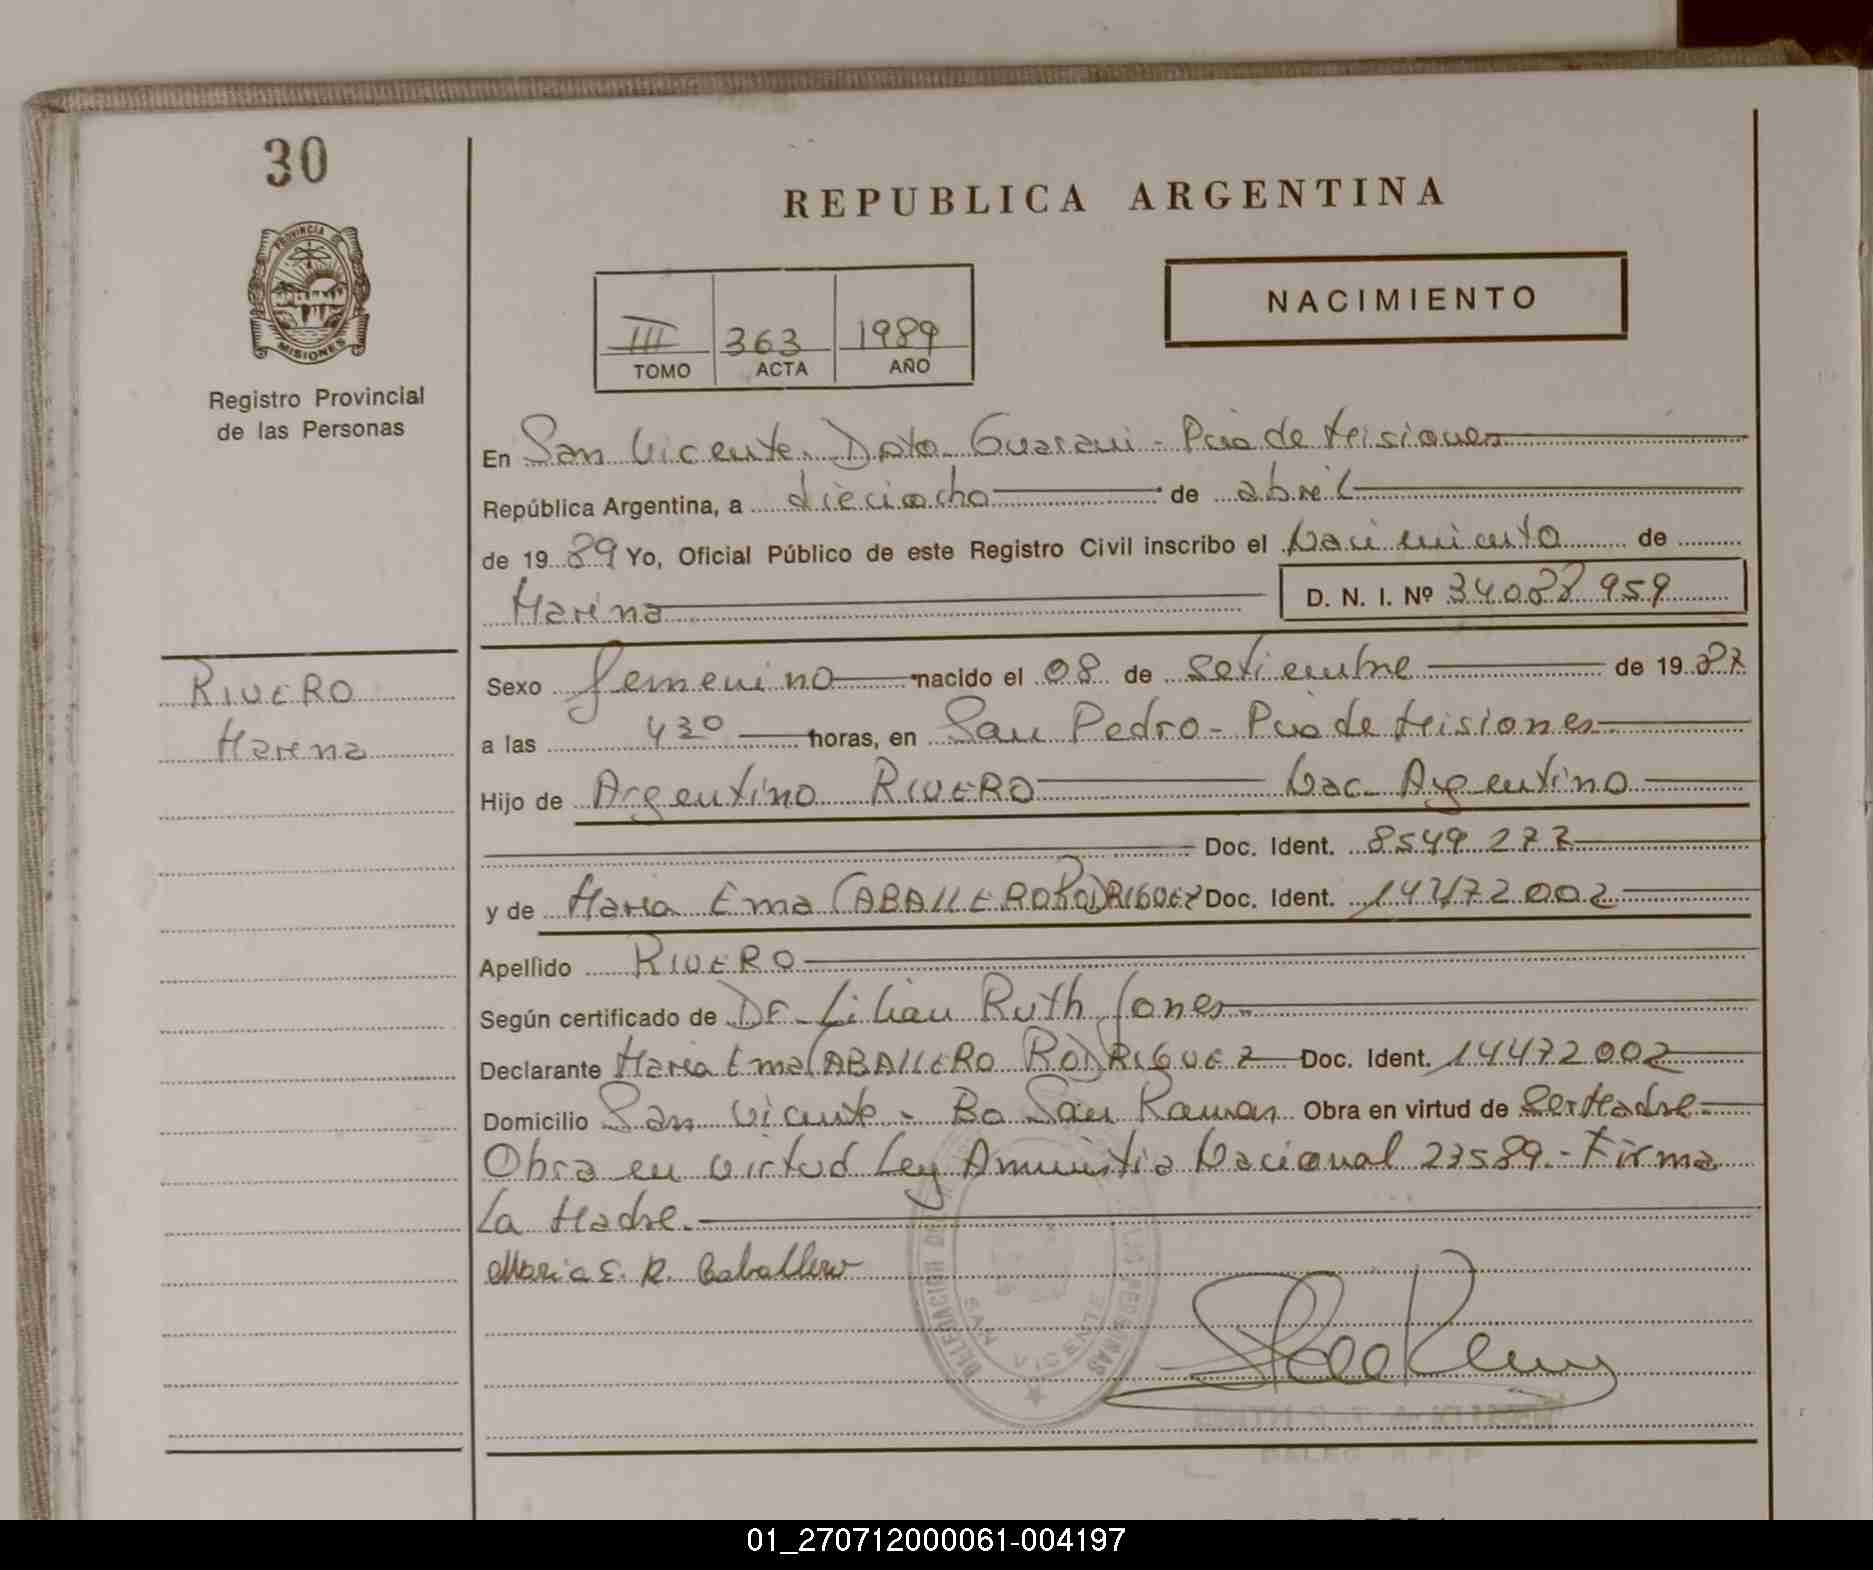 30
REPUBLICA ARGENTINA
PROVINCIA DE
MISIONES
NACIMIENTO
III 363 1989
TOMO ACTA AÑO
Registro Provincial
de las Personas
En San Vicente Dpto Guarani - Pcia de Misiones
República Argentina, a dieciocho de abril
de 1989 Yo, Oficial Público de este Registro Civil inscribo el Nacimiento de
Marina D. N. I. Nº 34088959
RIVERO
Marina
Sexo femenino nacido el 08 de setiembre de 1987
a las 430 horas, en San Pedro - Pcia de Misiones
Hijo de Argentino RIVERO Nac. Argentino
Doc. Ident. 8549 277
y de Maria Ema CABALLERO RODRIGUEZ Doc. Ident. 14472002
Apellido RIVERO
Según certificado de Dr. Lilian Ruth Jones
Declarante Maria Ema CABALLERO RODRIGUEZ Doc. Ident. 14472002
Domicilio San Vicente - Bo San Ramon Obra en virtud de Ser Madre
Obra en virtud Ley Amnistia Nacional 23589.- Firma
La Madre.
Maria E. R. Caballero
SAN VICENTE
01_270712000061-004197